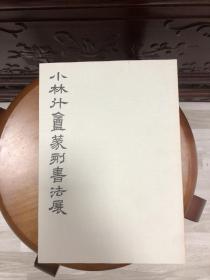 小林斗盦篆刻書法展